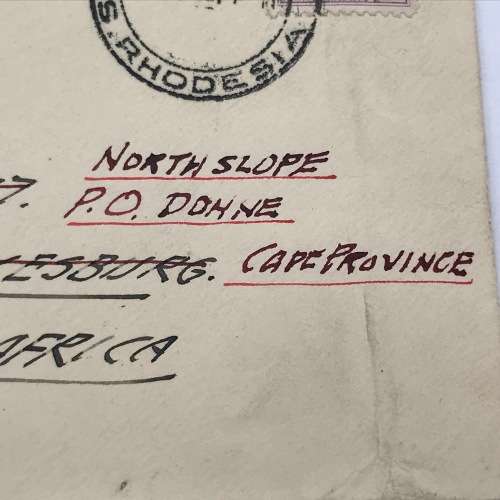 S. RHODESIA
NORTH SLOPE
7. P.O. DOHNE
ESBURG. CAPE PROVINCE
AFRICA